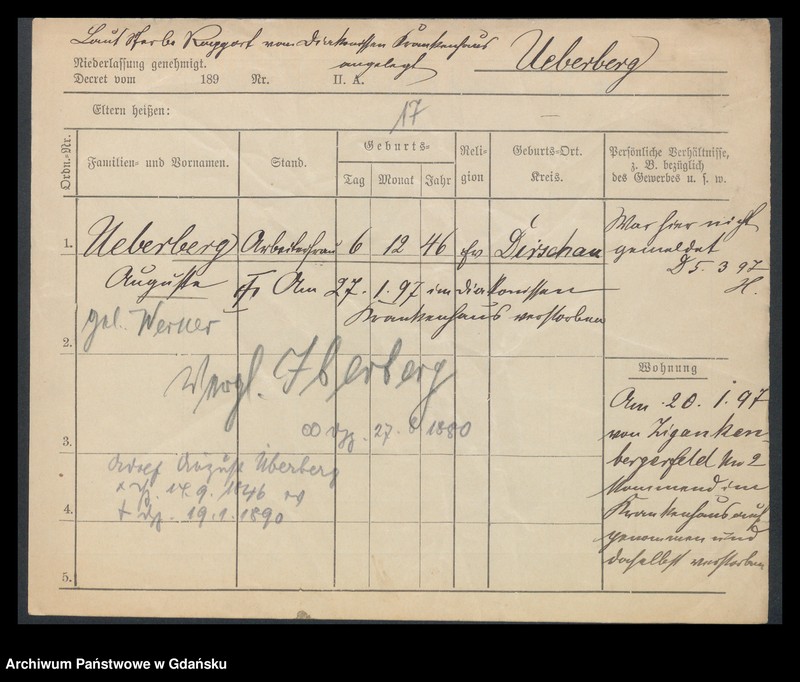 Laut Sterbe Rapport vom Diakonissen Krankenhaus
angelegt
Ueberberg
Niederlassung genehmigt.
Decret vom 189 Nr. II. A.
Eltern heißen: —
17
Ordn.-Nr.
Familien- und Vornamen.
Stand.
Geburts-
Tag Monat Jahr
Reli-
gion
Geburts-Ort.
Kreis.
Persönliche Verhältnisse,
z. B. bezüglich
des Gewerbes u. s. w.
1. Ueberberg Arbeiterfrau 6 12 46 ev Dirschau
Auguste † Am 27. 1. 97 im Diakonissen
Krankenhaus verstorben
geb. Werner
War hier nicht
gemeldet
D 5. 3 97
H.
2.
Vergl. Iberberg
∞ Dzg. 27. 8 1880
3.
Adolf August Überberg
* Dzg. 14. 9. 1846 ev
† Dzg. 19. 1. 1890
4.
5.
Wohnung
Am 20. 1. 97
von Ziganken-
bergerfeld No 2
kommend im
Krankenhaus auf
genommen und
daselbst verstorben
Archiwum Państwowe w Gdańsku